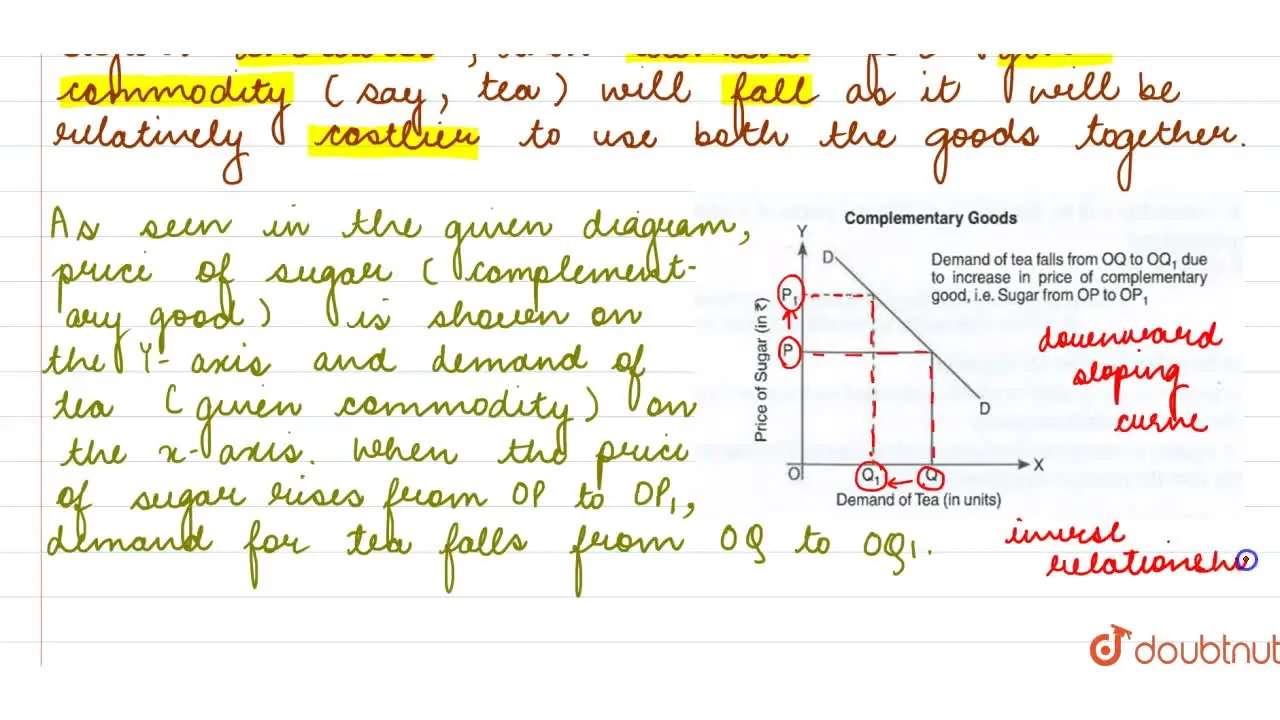 commodity (say, tea) will fall as it will be
relatively costlier to use both the goods together.
As seen in the given diagram,
price of sugar (complement-
ary good) is shown on
the Y-axis and demand of
tea (given commodity) on
the x-axis. When the price
of sugar rises from OP to OP₁,
demand for tea falls from OQ to OQ₁.
Complementary Goods
Y
D
Demand of tea falls from OQ to OQ₁ due
to increase in price of complementary
good, i.e. Sugar from OP to OP₁
P₁
P
Price of Sugar (in ₹)
D
O
Q₁
Q
X
Demand of Tea (in units)
downward
sloping
curve
inverse
relationshi
doubtnut